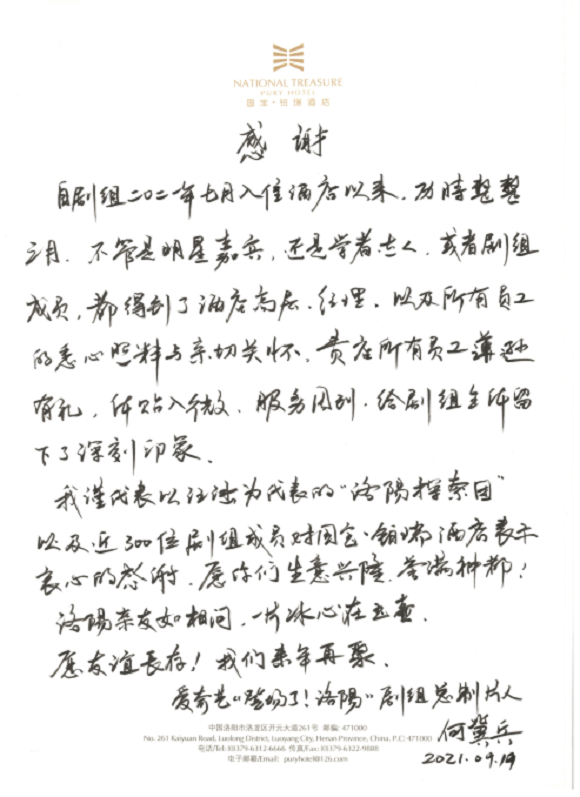 NATIONAL TREASURE
PURY HOTEL
国宝·铂瑞酒店
感谢
自剧组二〇二一年七月入住酒店以来，历时整整
三月．不管是明星嘉宾，还是学者达人，或者剧组
成员，都得到了酒店高层、经理、以及所有员工
的悉心照料与亲切关怀．贵店所有员工谦逊
有礼，体贴入微，服务周到．给剧组全体留
下了深刻印象．
我谨代表以汪涵为代表的“洛阳探索团”
以及近300位剧组成员对国宝·铂瑞酒店表示
衷心的感谢．愿你们生意兴隆．誉满神都！
洛阳亲友如相问，一片冰心在玉壶．
愿友谊长存！我们来年再聚．
爱奇艺“登场了！洛阳”剧组总制片人
何冀兵
2021.09.19
中国洛阳市洛龙区开元大道261号 邮编: 471000
No. 261 Kaiyuan Road, Luolong District, Luoyang City, Henan Province, China, P.C) 471000
电话/Tel:(0)379-6312-6666 传真/Fax:(0)379-6322-9888
电子邮箱/Email: puryhotel@126.com